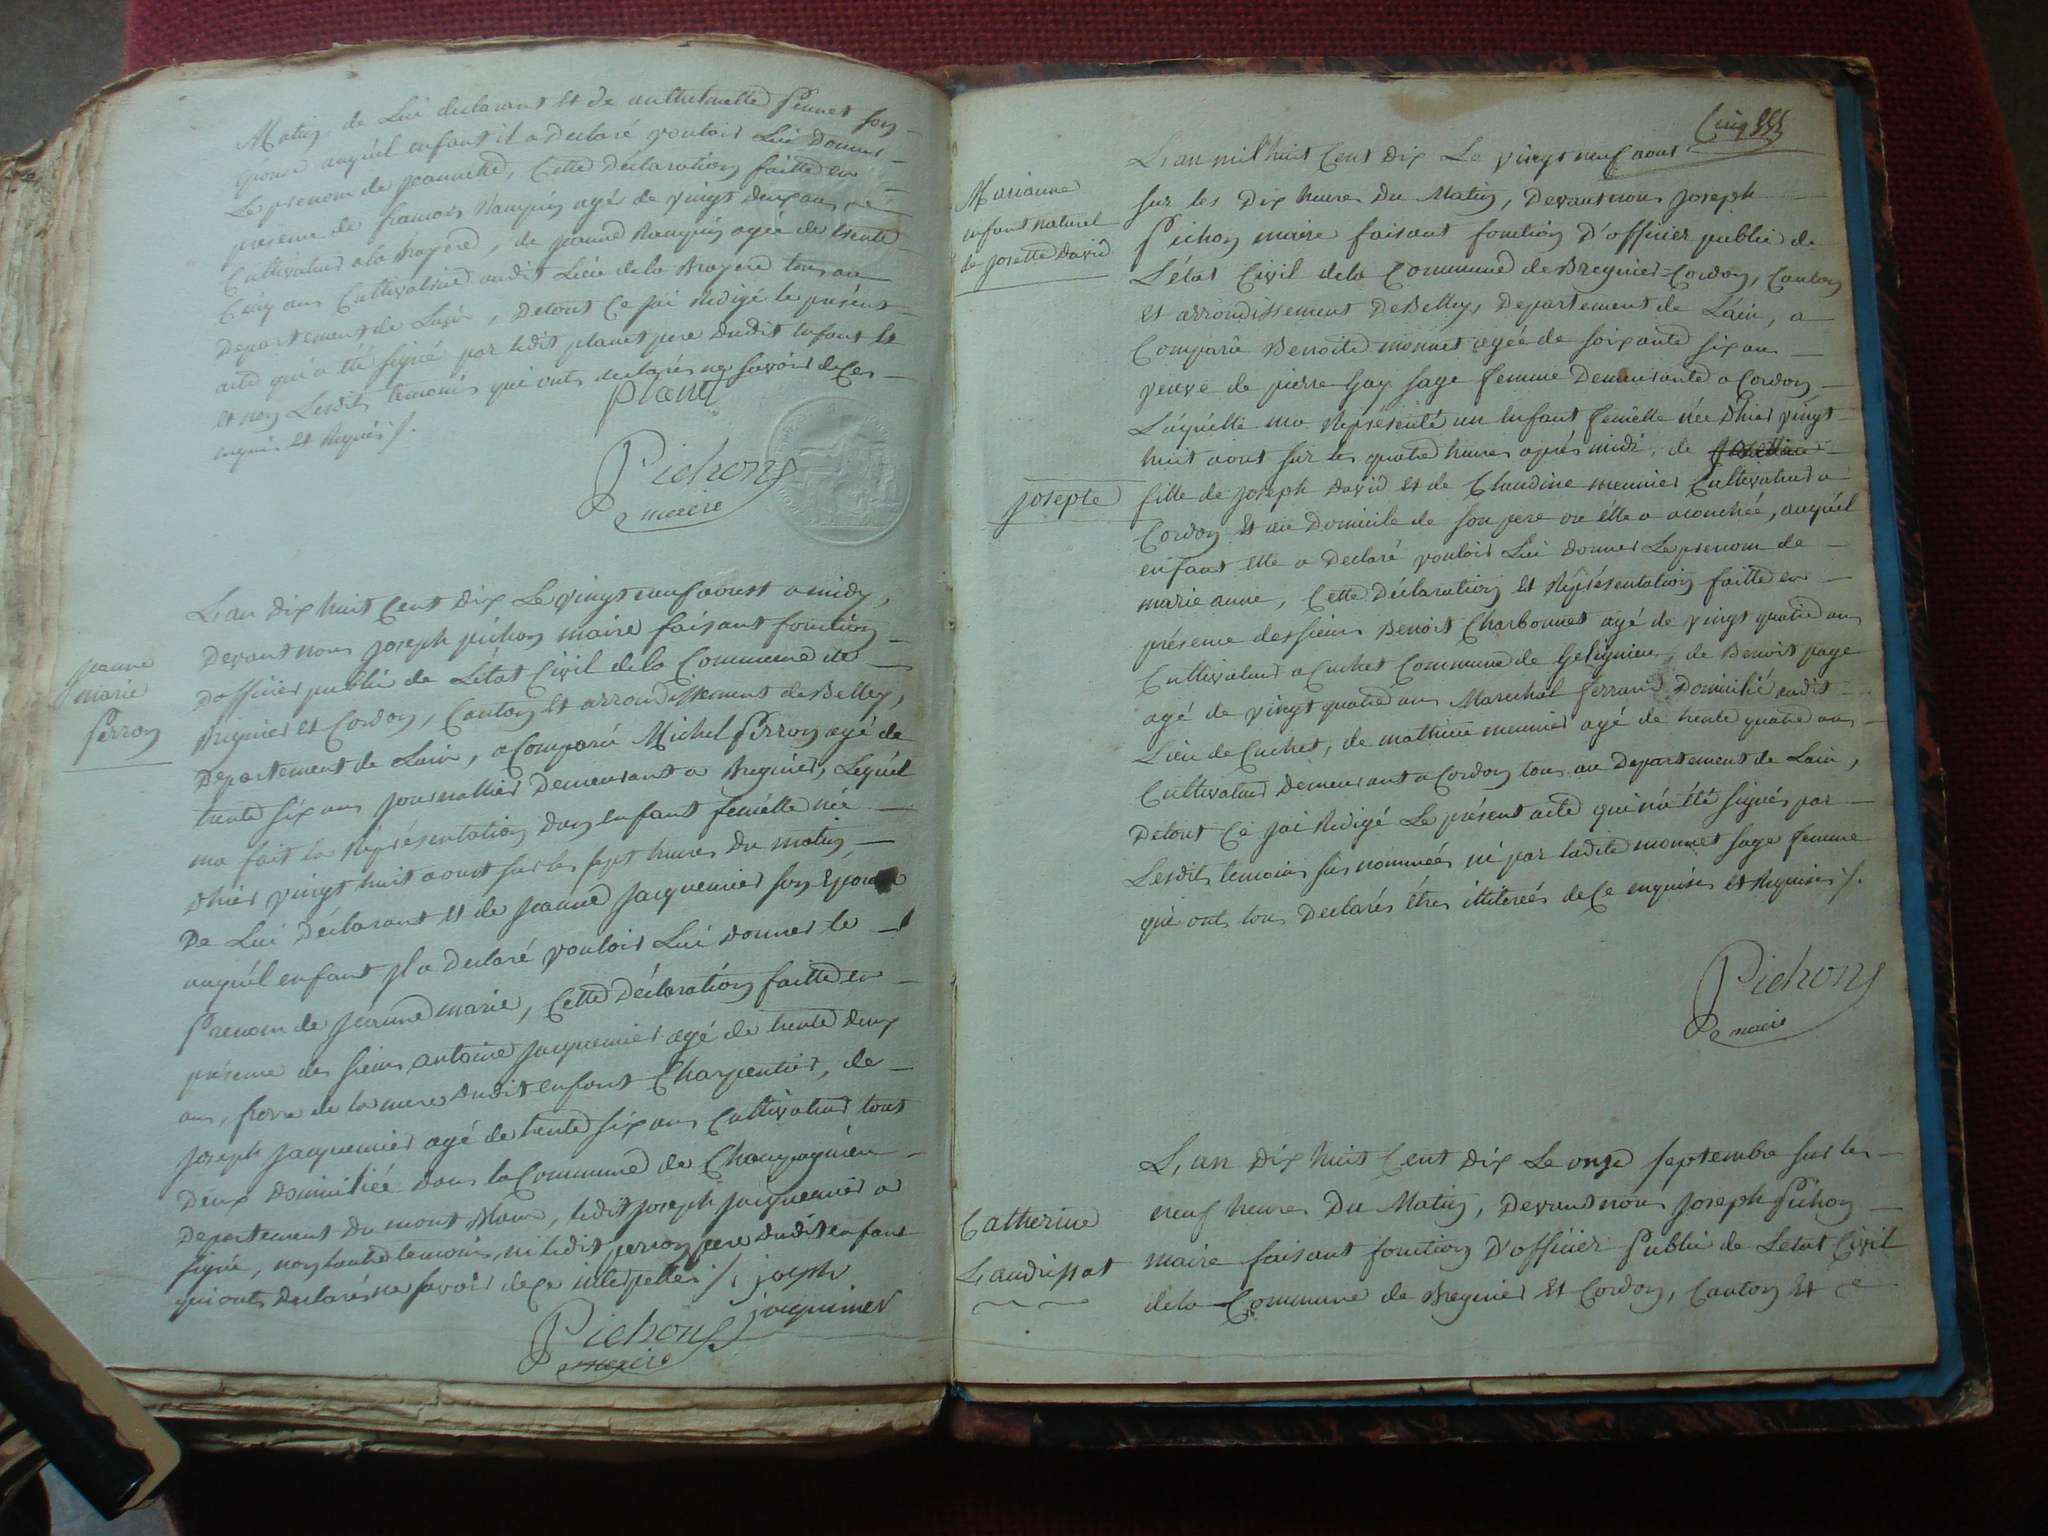 Matin, de Lui declarant et de anthelmette Pennet son
épouse auquél enfant il a declaré vouloir Lui donner
Le prenom de jeannette, Cette déclaration faitte en
présence de francois Ranquin agé de vingt deux ans
Cultivateur a la Bruyere, de jeanne Ranquin agée de trente
Cinq ans Cultivatrice audit Lieu de la Bruyere tous au
Departement de Lain, Detout Ce jai redigé le présent
acte qui a été signé par ledit planet pere dudit enfant et
et non Lesdits temoins qui ont declarés ne savoir de Ces
enquis et Requis /.
Planet
Pichon
maire
jeanne
marie
Perron
L'an dix huit Cent dix Le vingt neuf aoust a midy,
Devant nous joseph pichon maire faisant fonction
D'officier public de L'état Civil dela Commune de
Bregnier et Cordon, Canton et arrondissement de Belley,
Departement de Lain, a Comparu Michel Perron agé de
trente six ans journallier Demeurant a Bregnier, Lequél
ma fait la Répréséntation dun enfant femélle née
d'hier vingt huit aoust sur les sept heures du matin,
De Lui Déclarant et de jeanne jacquemier son Epouse
auquél enfant jl a Declaré vouloir Lui donner le
Prenom de jéanne marie, Cette Déclaration faitte en
présence des sieurs antoine jacquemier agé de trente deux
ans, frere de la mere dudit enfant Charpentier, de
joseph jacquemier agé de trente six ans Cultivateur tous
Deux domiciliée dans la Commune de Champagnieu
Departement du mont Blanc, ledit joseph jacquemier a
signé, non lautre temoin, ni ledit perron pere dudit enfant
qui ont Declarés ne savoir de Ce interpellés /. joseph
jacquimer
Pichon
maire
Cinq
Marianne
enfant naturel
de josette David
L'an mil huit Cent dix Le vingt neuf aout
sur les Dix heures Du Matin, Devant nous joseph
Pichon maire faisant fonction D'officier public de
L'état Civil dela Commune de Bregnier-Cordon, Canton
et arrondissement De Belley, Departement de Lain, a
Comparû Benoite monnet agée de soixante six ans
veuve de pierre Gay sage femme Demeurante a Cordon
Laquélle ma Réprésénté un enfant femélle née d'hier vingt
huit aout sur les quatre heures aprés midi, de
josepte
fille de joseph David et de Claudine meunier Cultivateur a
Cordon et au Domicile de son pere ou élle a acouchée, auquél
enfant élle a Declaré vouloir Lui donner Le prenom de
marie anne, Cette Déclaration et Réprésentation faitte en
présence des sieurs Benoit Charbonnet agé de vingt quatre ans
Cultivateur a Cuchet Commune de Gelignieu, de Benoit page
agé de vingt quatre ans Marechal ferrand Domicilié audit
Lieu de Cuchet, de mathieu meunier agé de trente quatre ans
Cultivateur Demeurant a Cordon tous au Departement de Lain,
Detout Ce jai Redigé Le présent acte qui na été signés par
Lesdits temoins sus nommées ni par ladite monnet sage femme
qui ont tous Declarés étres illiterés de Ce enquises et Requises /.
Pichon
maire
Catherine
Landrissat
L'an Dix huit Cent Dix Le onze septembre sur les
neuf heures Du Matin, Devant nous joseph Pichon
maire faisant fonction D'officier Public de L'etat Civil
dela Commune de Bregnier et Cordon, Canton et